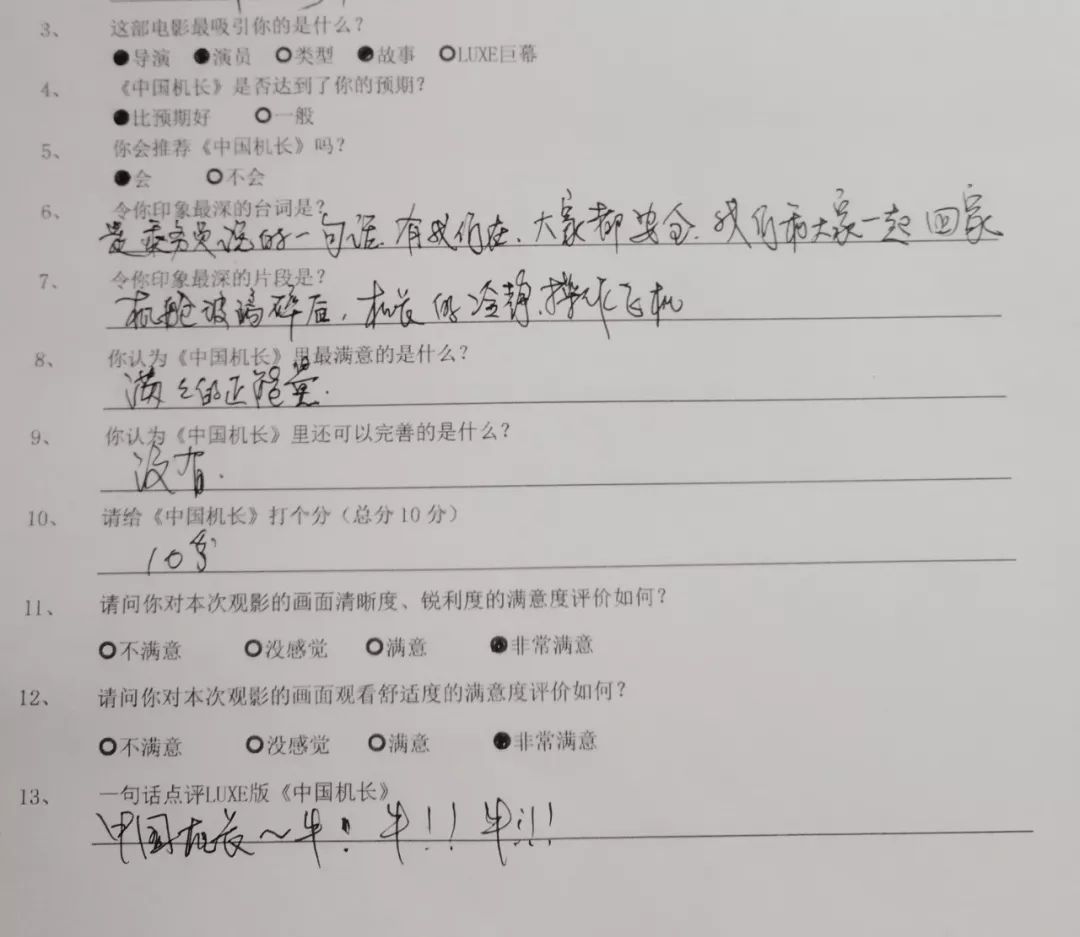 3、 这部电影最吸引你的是什么？
●导演 ●演员 ○类型 ●故事 ○LUXE巨幕
4、 《中国机长》是否达到了你的预期？
●比预期好 ○一般
5、 你会推荐《中国机长》吗？
●会 ○不会
6、 令你印象最深的台词是？
是乘务员说的一句话.有我们在、大家都安全.我们和大家一起回家
7、 令你印象最深的片段是？
机舱玻璃碎后，机长的冷静.操作飞机
8、 你认为《中国机长》里最满意的是什么？
满满的正能量.
9、 你认为《中国机长》里还可以完善的是什么？
没有.
10、 请给《中国机长》打个分（总分10分）
10分
11、 请问你对本次观影的画面清晰度、锐利度的满意度评价如何？
○不满意 ○没感觉 ○满意 ●非常满意
12、 请问你对本次观影的画面观看舒适度的满意度评价如何？
○不满意 ○没感觉 ○满意 ●非常满意
13、 一句话点评LUXE版《中国机长》
中国机长~牛！牛！！牛！！！